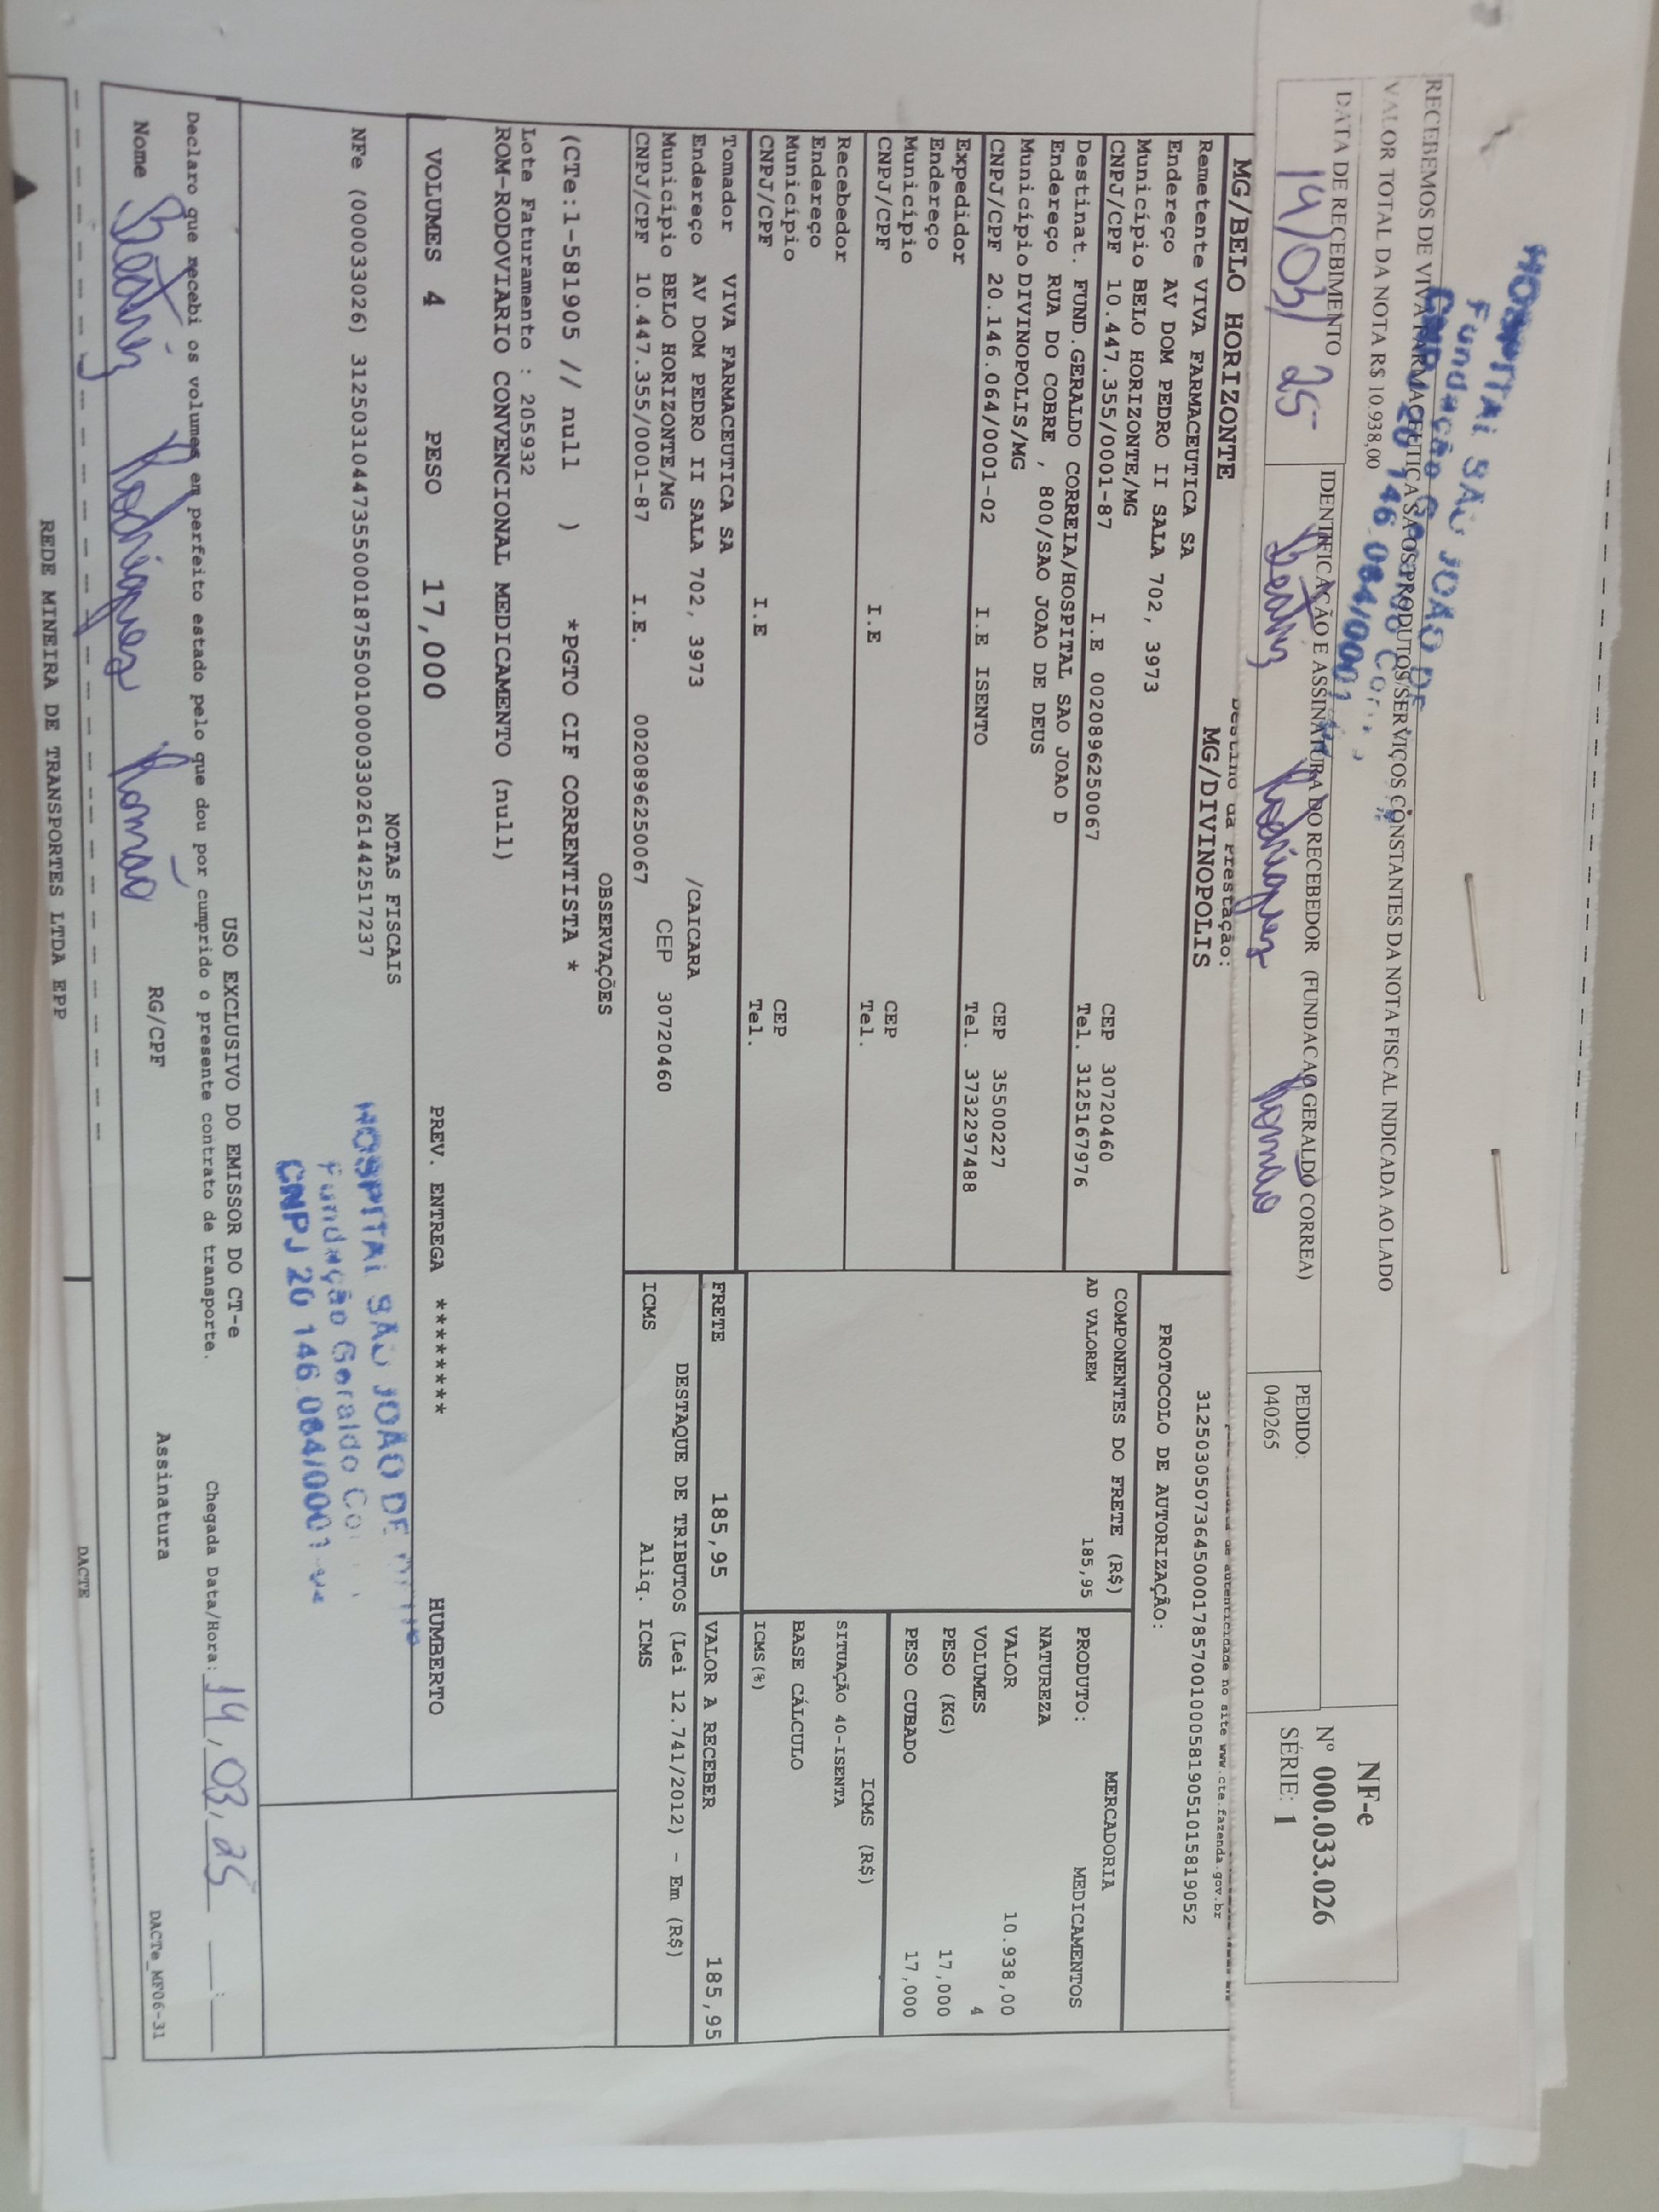 HOSPITAL SÃO JOÃO DE
Fundação Geraldo Cor
CNPJ 20 146 064/0001
RECEBEMOS DE VIVA FARMACEUTICA SA OS PRODUTOS/SERVIÇOS CONSTANTES DA NOTA FISCAL INDICADA AO LADO
VALOR TOTAL DA NOTA R$ 10.938,00
DATA DE RECEBIMENTO
14/03/25
IDENTIFICAÇÃO E ASSINATURA DO RECEBEDOR (FUNDACAO GERALDO CORREA)
Beatriz Rodrigues Romão
PEDIDO:
040265
NF-e
Nº 000.033.026
SÉRIE: 1
Destino da Prestação:
MG/BELO HORIZONTE MG/DIVINOPOLIS
de autenticidade no site www.cte.fazenda.gov.br
31250305073645000178570010005819051015819052
PROTOCOLO DE AUTORIZAÇÃO:
Remetente VIVA FARMACEUTICA SA
Endereço AV DOM PEDRO II SALA 702, 3973
Município BELO HORIZONTE/MG CEP 30720460
CNPJ/CPF 10.447.355/0001-87 I.E 0020896250067 Tel. 3125167976
Destinat. FUND.GERALDO CORREIA/HOSPITAL SAO JOAO D
Endereço RUA DO COBRE , 800/SAO JOAO DE DEUS
Município DIVINOPOLIS/MG CEP 35500227
CNPJ/CPF 20.146.064/0001-02 I.E ISENTO Tel. 3732297488
Expedidor
Endereço
Município CEP
CNPJ/CPF I.E Tel.
Recebedor
Endereço
Município CEP
CNPJ/CPF I.E Tel.
Tomador VIVA FARMACEUTICA SA
Endereço AV DOM PEDRO II SALA 702, 3973 /CAICARA
Município BELO HORIZONTE/MG CEP 30720460
CNPJ/CPF 10.447.355/0001-87 I.E. 0020896250067
COMPONENTES DO FRETE (R$)
AD VALOREM 185,95
MERCADORIA
PRODUTO: MEDICAMENTOS
NATUREZA
VALOR 10.938,00
VOLUMES 4
PESO (KG) 17,000
PESO CUBADO 17,000
ICMS (R$)
SITUAÇÃO 40-ISENTA
BASE CÁLCULO
ICMS(%)
FRETE 185,95
VALOR A RECEBER 185,95
DESTAQUE DE TRIBUTOS (Lei 12.741/2012) - Em (R$)
ICMS Aliq. ICMS
OBSERVAÇÕES
(CTe:1-581905 // null ) *PGTO CIF CORRENTISTA *
Lote Faturamento : 205932
ROM-RODOVIARIO CONVENCIONAL MEDICAMENTO (null)
VOLUMES 4 PESO 17,000 PREV. ENTREGA ******** HUMBERTO
NOTAS FISCAIS
NFe (000033026) 31250310447355000187550010000330261442517237
HOSPITAL SÃO JOÃO DE
Fundação Geraldo Co
CNPJ 20 146 064/0001
USO EXCLUSIVO DO EMISSOR DO CT-e
Declaro que recebi os volumes em perfeito estado pelo que dou por cumprido o presente contrato de transporte.
Chegada Data/Hora: 14,03,25 __:__
Nome Beatriz Rodrigues Romão RG/CPF Assinatura
DACTe_MF06-31
REDE MINEIRA DE TRANSPORTES LTDA EPP
DACTE